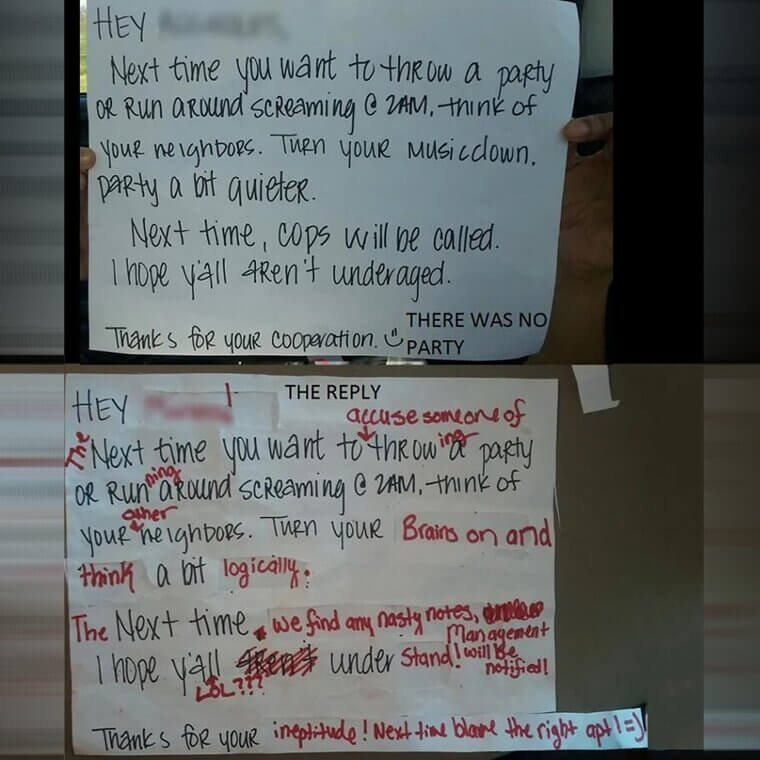 HEY
Next time you want to throw a party
or run around screaming @ 2AM, think of
your neighbors. Turn your music down,
party a bit quieter.
Next time, cops will be called.
I hope y'all aren't underaged.
Thanks for your cooperation.
THERE WAS NO
PARTY
THE REPLY
HEY !
accuse someone of
The Next time you want to throwing a party
or Running around screaming @ 2AM, think of
other
your neighbors. Turn your Brains on and
think a bit logically.
The Next time, we find any nasty notes,
Management
I hope y'all aren't under stand! will be
LOL??? notified!
Thanks for your ineptitude! Next time blame the right apt! =)